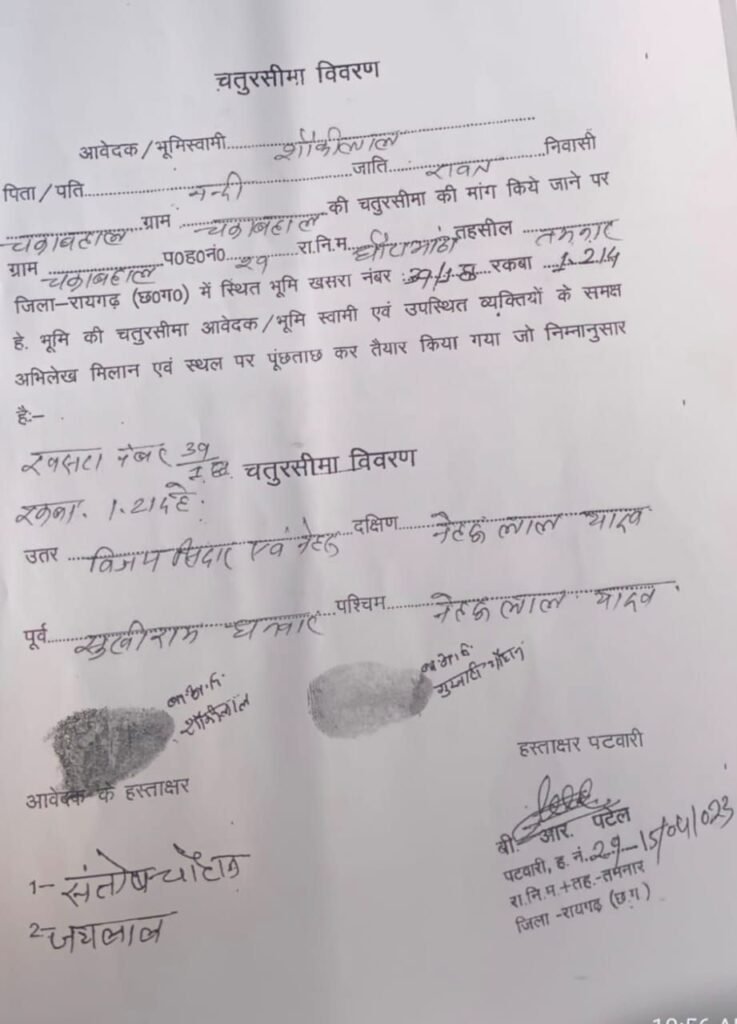 चतुरसीमा विवरण
आवेदक/भूमिस्वामी शौकीलाल
पिता/पति नन्दी जाति रावत निवासी
चक्राबहाल ग्राम चक्राबहाल की चतुरसीमा की मांग किये जाने पर
ग्राम चक्राबहाल प०ह०नं० २९ रा.नि.म. तहसील तमनार
जिला-रायगढ़ (छ०ग०) में स्थित भूमि खसरा नंबर 39/1 रकबा 1.214
हे. भूमि की चतुरसीमा आवेदक/भूमि स्वामी एवं उपस्थित व्यक्तियों के समक्ष
अभिलेख मिलान एवं स्थल पर पूंछताछ कर तैयार किया गया जो निम्नानुसार
है:-
खसरा नंबर 39/1 चतुरसीमा विवरण
रकबा. 1.214 हे.
उतर विजय सिदार एवं दक्षिण लाल यादव
पूर्व सुखीराम पश्चिम लाल यादव
शौकीलाल
आवेदक के हस्ताक्षर
हस्ताक्षर पटवारी
बी. आर. पटेल
पटवारी, ह. नं. 29 15/04/023
रा.नि.म +तह.-तमनार
जिला -रायगढ़ (छ.ग)
1- संतोष चौहान
2- जयलाल